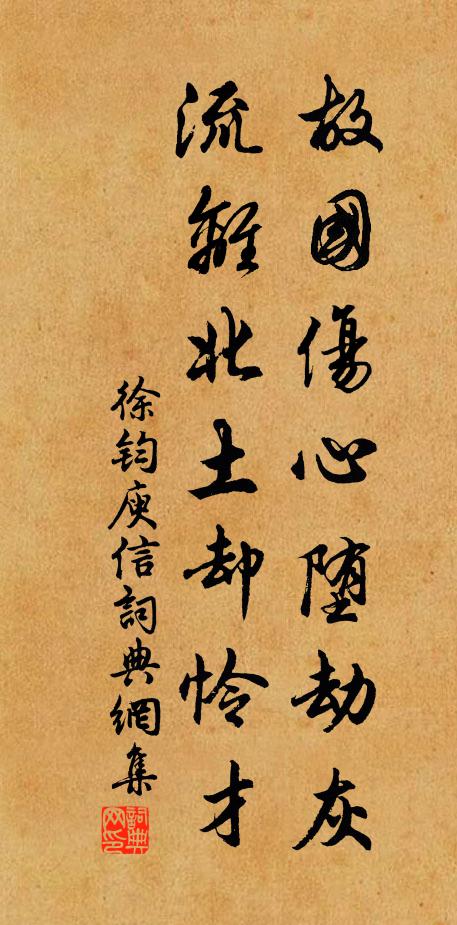 故國傷心堕劫灰
流離北土却怜才
徐鈞庾信詞典網集
詞典网印